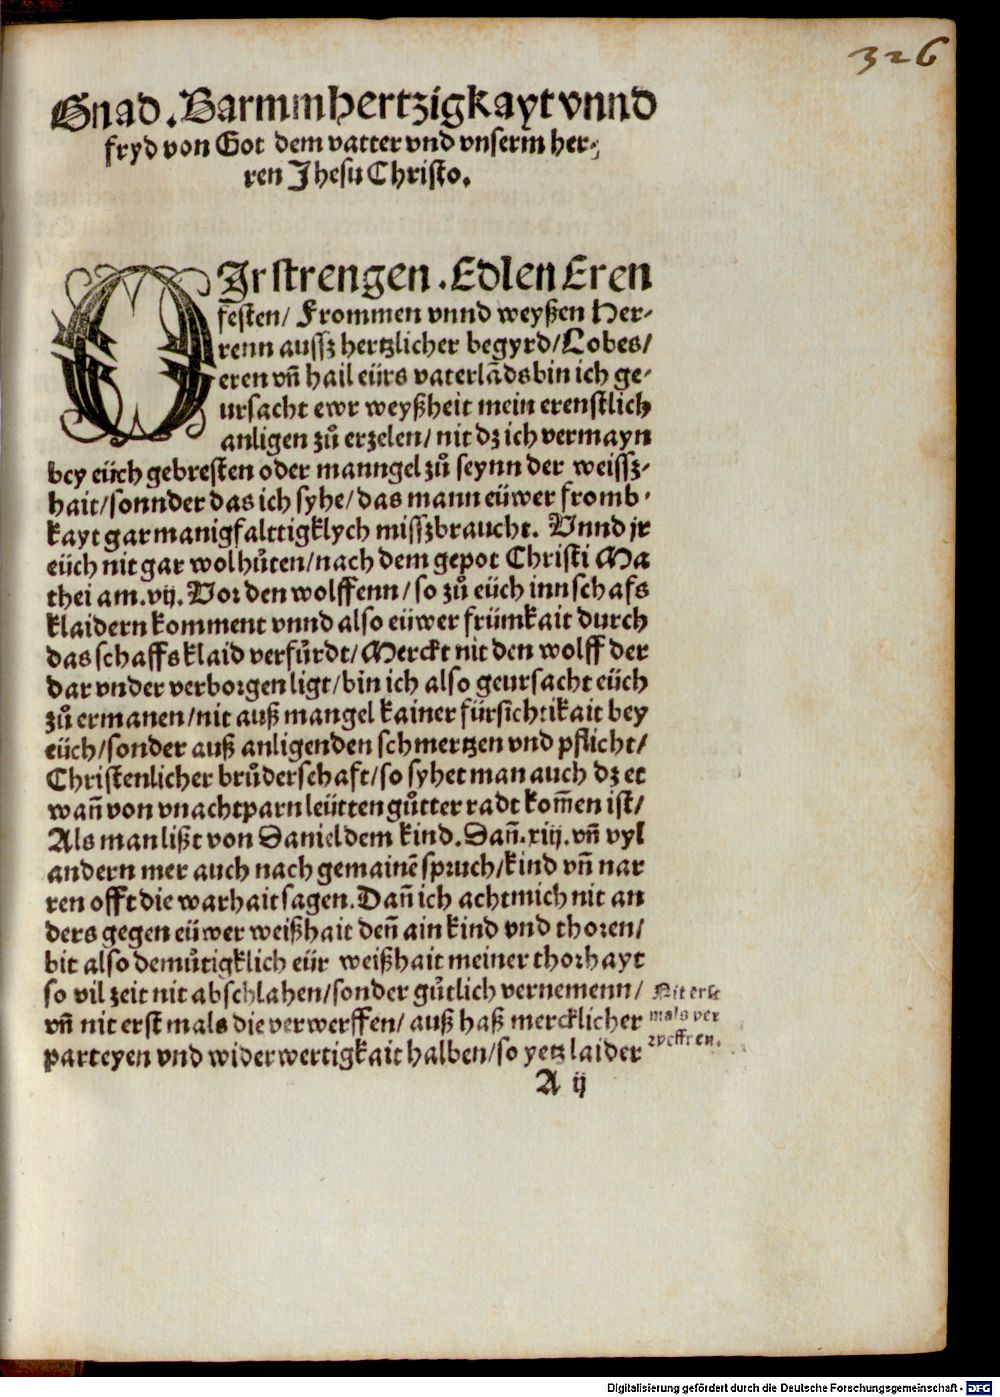 326
Gnad. Barmmhertzigkayt vnnd
fryd von Got dem vatter vnd vnserm her⸗
ren Jhesu Christo.
O Jr strengen. Edlen Eren
festen/ Frommen vnnd weyßen Her⸗
renn aussz hertzlicher begyrd/ Lobes/
eren vñ hail eürs vaterlãds bin ich ge⸗
ursacht ewr weyßheit mein erenstlich
anligen zů erzelen/ nit dz ich vermayn
bey eüch gebresten oder manngel zů seynn der weissz⸗
hait/ sonnder das ich syhe/ das mann eüwer fromb⸗
kayt gar manigfalttigklych misszbraucht. Vnnd jr
eüch nit gar wol hůten/ nach dem gepot Christi Ma
thei am. vij. Vor den wolffenn/ so zů eüch inn schafs
klaidern komment vnnd also eüwer frümkait durch
das schaffs klaid verfůrdt/ Merckt nit den wolff der
dar vnder verborgen ligt/ bin ich also geursacht eüch
zů ermanen/ nit auß mangel kainer fürsichtikait bey
eüch/ sonder auß anligenden schmertzen vnd pflicht/
Christenlicher brůderschaft/ so syhet man auch dz et
wañ von vnachtparn leütten gůtter radt kom̃en ist/
Als man lißt von Daniel dem kind. Dañ. xiij. vñ vyl
andern mer auch nach gemainẽ spruch/ kind vñ nar
ren offt die warhait sagen. Dañ ich acht mich nit an
ders gegen eüwer weißhait deñ ain kind vnd thoren/
bit also demůtigklich eür weißhait meiner thorhayt
so vil zeit nit abschlahen/ sonder gůtlich vernemenn/
vñ nit erst mals die verwerffen/ auß haß mercklicher
parteyen vnd widerwertigkait halben/ so yetz laider
Nit erst
mals ver
A ij
Digitalisierung gefördert durch die Deutsche Forschungsgemeinschaft - DFG